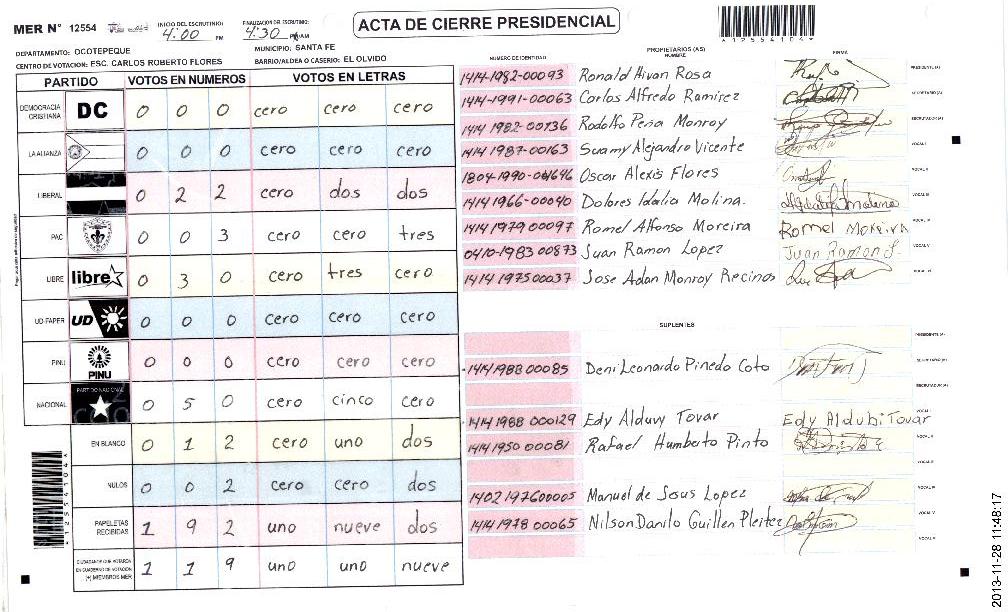 MER N° 12554
INICIO DEL ESCRUTINIO: 4:00 PM
FINALIZACION DEL ESCRUTINIO: 4:30 PM
ACTA DE CIERRE PRESIDENCIAL
*12554104*
DEPARTAMENTO: OCOTEPEQUE
MUNICIPIO: SANTA FE
CENTRO DE VOTACION: ESC. CARLOS ROBERTO FLORES
BARRIO/ALDEA O CASERIO: EL OLVIDO
PARTIDO VOTOS EN NUMEROS VOTOS EN LETRAS
DEMOCRACIA CRISTIANA DC 0 0 0 cero cero cero
LA ALIANZA 0 0 0 cero cero cero
LIBERAL 0 2 2 cero dos dos
PAC 0 0 3 cero cero tres
LIBRE libre 0 3 0 cero tres cero
UD-FAPER UD 0 0 0 cero cero cero
PINU PINU 0 0 0 cero cero cero
NACIONAL PARTIDO NACIONAL 0 5 0 cero cinco cero
EN BLANCO 0 1 2 cero uno dos
NULOS 0 0 2 cero cero dos
PAPELETAS RECIBIDAS 1 9 2 uno nueve dos
CIUDADANOS QUE VOTARON EN CUADERNO DE VOTACION (+) MIEMBROS MER 1 1 9 uno uno nueve
*12554104*
PROPIETARIOS (AS)
NUMERO DE IDENTIDAD NOMBRE FIRMA
1414-1982-00093 Ronald Hivan Rosa PRESIDENTE(A)
1414-1991-00063 Carlos Alfredo Ramirez SECRETARIO(A)
1414 1982-00136 Rodolfo Peña Monroy ESCRUTADOR(A)
1414-1987-00163 Suamy Alejandro Vicente VOCAL I
1804-1990-01646 Oscar Alexis Flores VOCAL II
1414-1966-00040 Dolores Idalia Molina. VOCAL III
1414 1979 00097 Romel Alfonso Moreira Romel Moreira VOCAL IV
0410-1983 00873 Juan Ramon Lopez Juan Ramon L. VOCAL V
1414 1975 00037 Jose Adan Monroy Recinos VOCAL VI
SUPLENTES
PRESIDENTE (A)
1414 1988 00085 Deni Leonardo Pinedo Coto SECRETARIO (A)
ESCRUTADOR (A)
1414 1988 000129 Edy Alduvy Tovar Edy Aldubi Tovar VOCAL I
1414 1950 00081 Rafael Humberto Pinto VOCAL II
VOCAL III
1402 197600005 Manuel de Jesus Lopez VOCAL IV
1414 1978 00065 Nilson Danilo Guillen Pleitez VOCAL V
VOCAL VI
2013-11-28 11:48:17